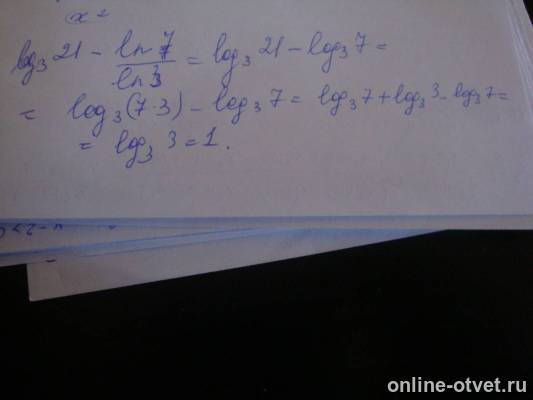 x²
log₃ 21 - ln 7 / ln 3 = log₃ 21 - log₃ 7 =
= log₃(7·3) - log₃ 7 = log₃ 7 + log₃ 3 - log₃ 7 =
= log₃ 3 = 1.
online-otvet.ru